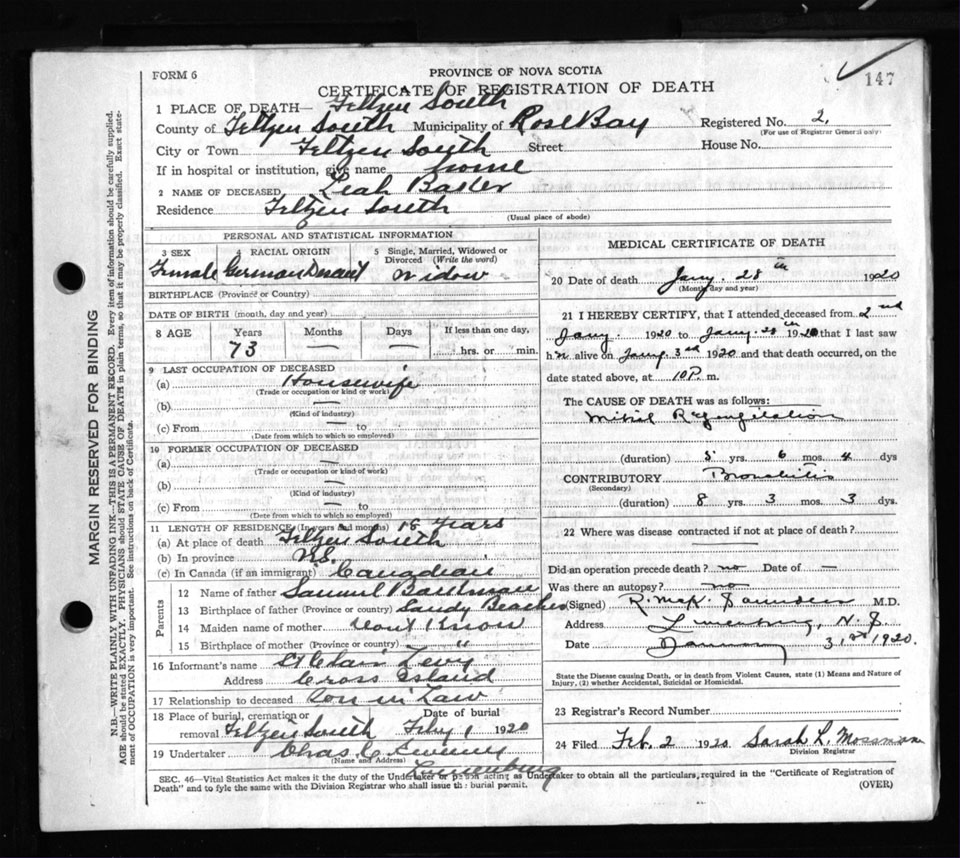 147
FORM 6
PROVINCE OF NOVA SCOTIA
CERTIFICATE OF REGISTRATION OF DEATH
1 PLACE OF DEATH— Feltzen South
County of Feltzen South Municipality of Rose Bay Registered No. 2.
(For use of Registrar General only)
City or Town Feltzen South Street House No.
If in hospital or institution, give name home
2 NAME OF DECEASED Leah Baker
Residence Feltzen South
(Usual place of abode)
PERSONAL AND STATISTICAL INFORMATION
3 SEX 4 RACIAL ORIGIN 5 Single, Married, Widowed or Divorced (Write the word)
Female German Desant Widow
BIRTHPLACE (Province or Country)
DATE OF BIRTH (month, day and year)
8 AGE Years Months Days If less than one day,
73 — — hrs. or min.
9 LAST OCCUPATION OF DECEASED
(a) Housewife
(Trade or occupation or kind of work)
(b) —
(Kind of industry)
(c) From — to
(Date from which to which so employed)
10 FORMER OCCUPATION OF DECEASED
(a) —
(Trade or occupation or kind of work)
(b) —
(Kind of industry)
(c) From — to
(Date from which to which so employed)
11 LENGTH OF RESIDENCE (In years and months) 18 Years
(a) At place of death Feltzen South
(b) In province N.S.
(c) In Canada (if an immigrant) Canadian
Parents
12 Name of father Samuel
13 Birthplace of father (Province or country) Sandy Beaches
14 Maiden name of mother Dont Know
15 Birthplace of mother (Province or country) "
16 Informant's name Levy
Address Cross Island
17 Relationship to deceased Son in Law
18 Place of burial, cremation or removal Feltzen South Date of burial Feby 1 1920
19 Undertaker Chas C
(Name and Address) Lunenburg
MEDICAL CERTIFICATE OF DEATH
20 Date of death Jany. 28th 1920
(Month, day and year)
21 I HEREBY CERTIFY, that I attended deceased from 2nd
Jany. 1920 to Jany. 28th 1920 that I last saw
her alive on Jany. 3rd 1920 and that death occurred, on the
date stated above, at 10 P. m.
The CAUSE OF DEATH was as follows:
Mitral Regurgitation
(duration) 5 yrs. 6 mos. 4 dys
CONTRIBUTORY Bronchitis
(Secondary)
(duration) 8 yrs. 3 mos. 3 dys.
22 Where was disease contracted if not at place of death?
Did an operation precede death? no Date of —
Was there an autopsy? no
(Signed) Saunders M.D.
Address Lunenburg, N.S.
Date January 31st 1920.
State the Disease causing Death, or in death from Violent Causes, state (1) Means and Nature of
Injury, (2) whether Accidental, Suicidal or Homicidal.
23 Registrar's Record Number
24 Filed Feb. 2 1920 Sarah L. Mossman
Division Registrar
SEC. 46—Vital Statistics Act makes it the duty of the Undertaker or person acting as Undertaker to obtain all the particulars, required in the "Certificate of Registration of
Death" and to fyle the same with the Division Registrar who shall issue the burial permit.
(OVER)
MARGIN RESERVED FOR BINDING
N.B.—WRITE PLAINLY WITH UNFADING INK—THIS IS A PERMANENT RECORD. Every item of information should be carefully supplied.
AGE should be stated EXACTLY. PHYSICIANS should STATE CAUSE OF DEATH in plain terms, so that it may be properly classified. Exact state-
ment of OCCUPATION is very important. See instructions on back of Certificate.